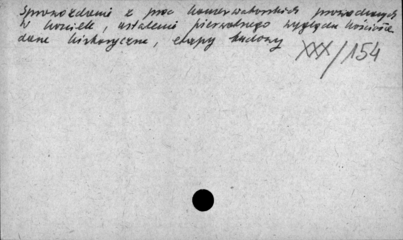 Sprawozdanie z prac konserwatorskich prowadzonych
w kościele, ustalenie pierwotnego wyglądu kościoła
dane historyczne, etapy budowy
XXX/154